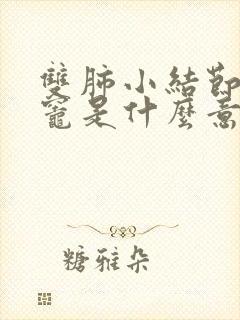 雙肺小結節
竈是什麼意
糖雅朵